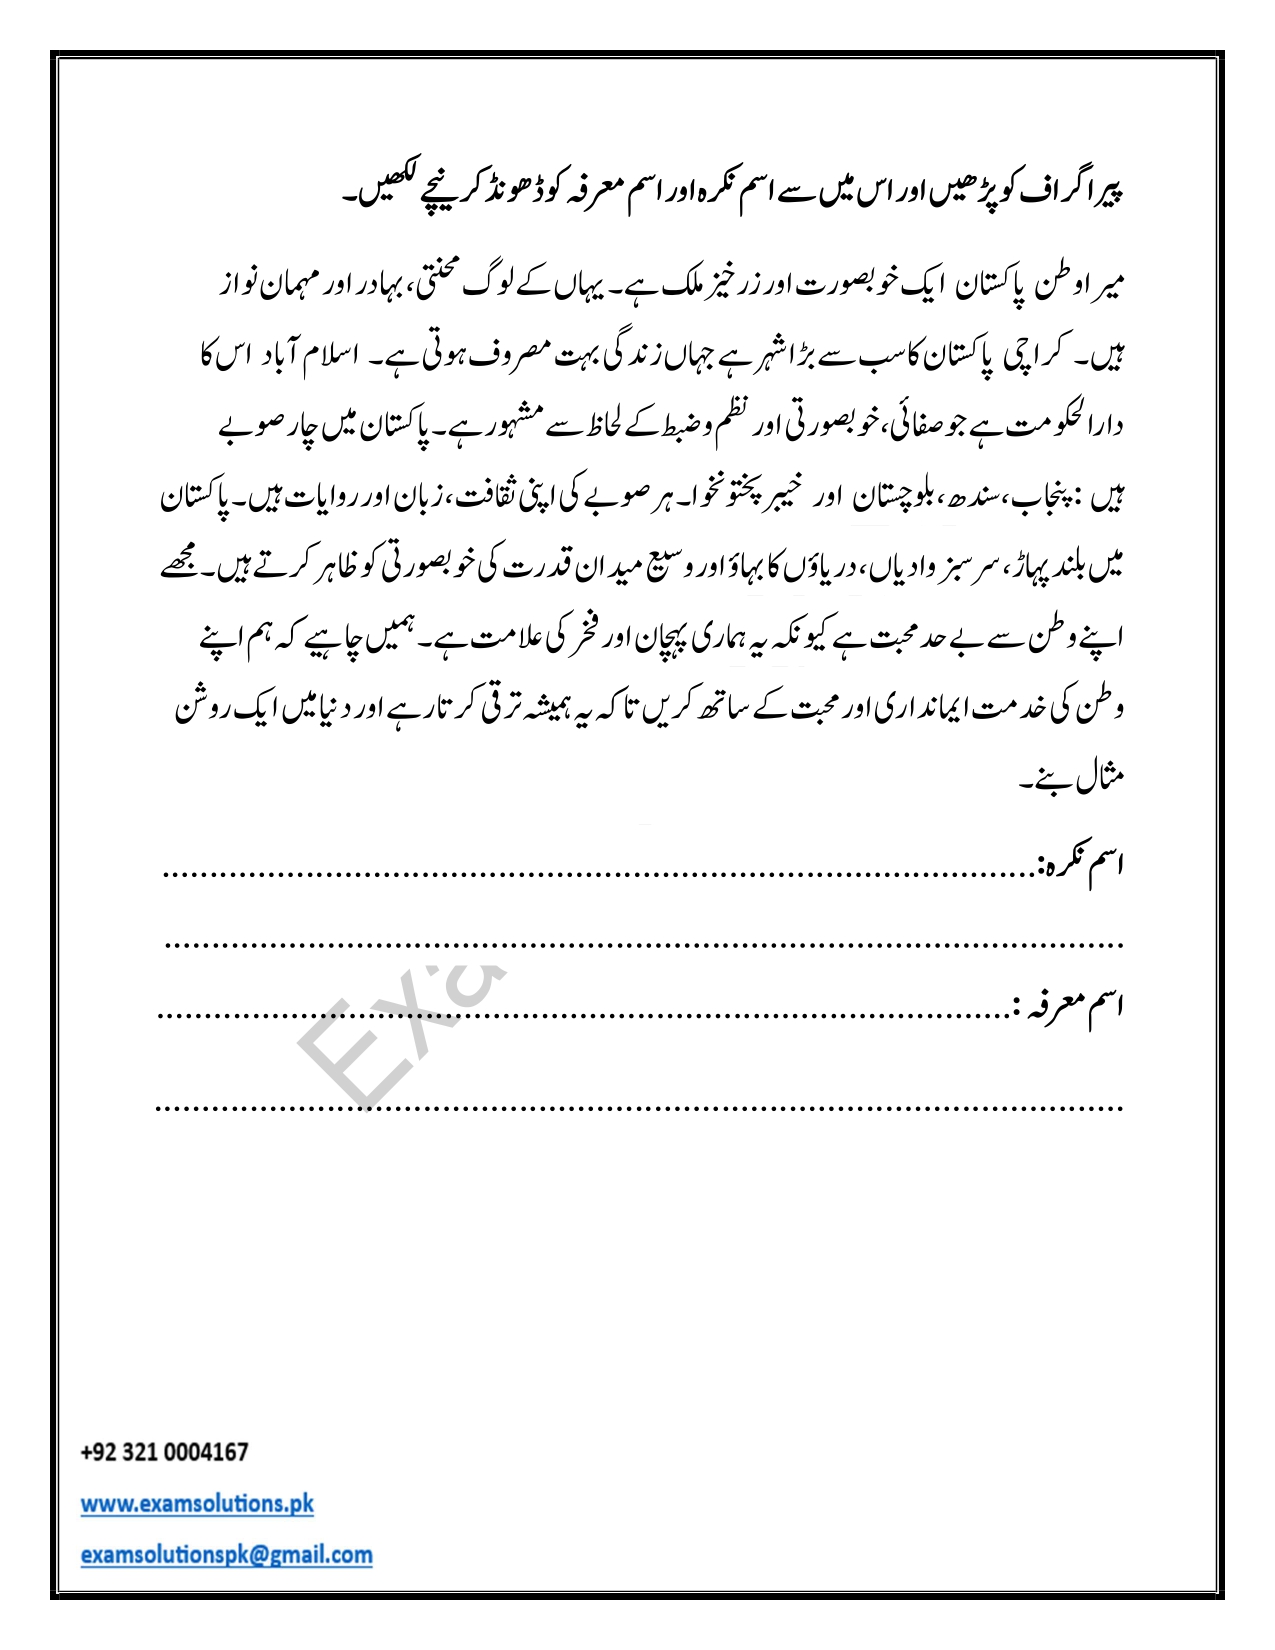 پیراگراف کو پڑھیں اور اس میں سے اسم نکرہ اور اسم معرفہ کو ڈھونڈ کر نیچے لکھیں۔
میرا وطن پاکستان ایک خوبصورت اور زرخیز ملک ہے۔ یہاں کے لوگ محنتی، بہادر اور مہمان نواز
ہیں۔ کراچی پاکستان کا سب سے بڑا شہر ہے جہاں زندگی بہت مصروف ہوتی ہے۔ اسلام آباد اس کا
دارالحکومت ہے جو صفائی، خوبصورتی اور نظم و ضبط کے لحاظ سے مشہور ہے۔ پاکستان میں چار صوبے
ہیں: پنجاب، سندھ، بلوچستان اور خیبر پختونخوا۔ ہر صوبے کی اپنی ثقافت، زبان اور روایات ہیں۔ پاکستان
میں بلند پہاڑ، سرسبز وادیاں، دریاؤں کا بہاؤ اور وسیع میدان قدرت کی خوبصورتی کو ظاہر کرتے ہیں۔ مجھے
اپنے وطن سے بے حد محبت ہے کیونکہ یہ ہماری پہچان اور فخر کی علامت ہے۔ ہمیں چاہیے کہ ہم اپنے
وطن کی خدمت ایمانداری اور محبت کے ساتھ کریں تاکہ یہ ہمیشہ ترقی کرتا رہے اور دنیا میں ایک روشن
مثال بنے۔
اسم نکرہ:..........................................................................................
....................................................................................................
اسم معرفہ :........................................................................................
....................................................................................................
Exa
+92 321 0004167
www.examsolutions.pk
examsolutionspk@gmail.com